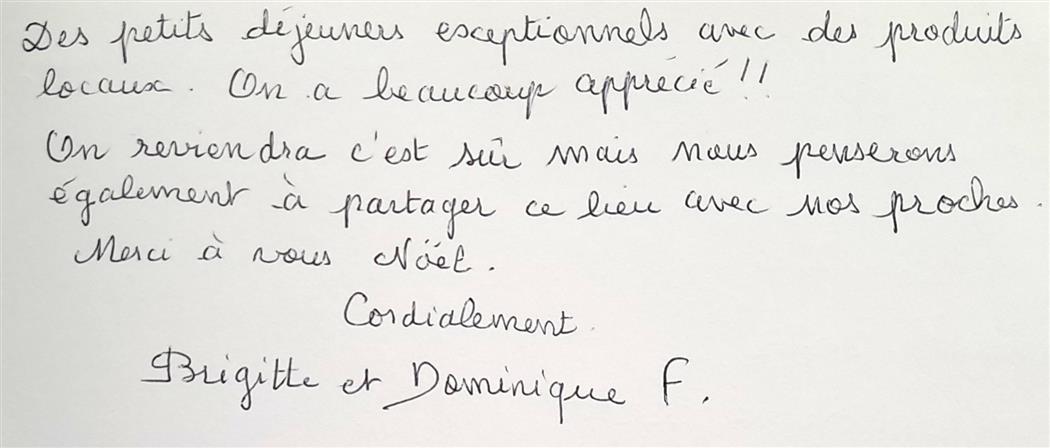 Des petits déjeuners exceptionnels avec des produits
locaux. On a beaucoup apprécié !!
On reviendra c'est sûr mais nous penserons
également à partager ce lieu avec nos proches.
Merci à vous Nöel.
Cordialement.
Brigitte et Dominique F.